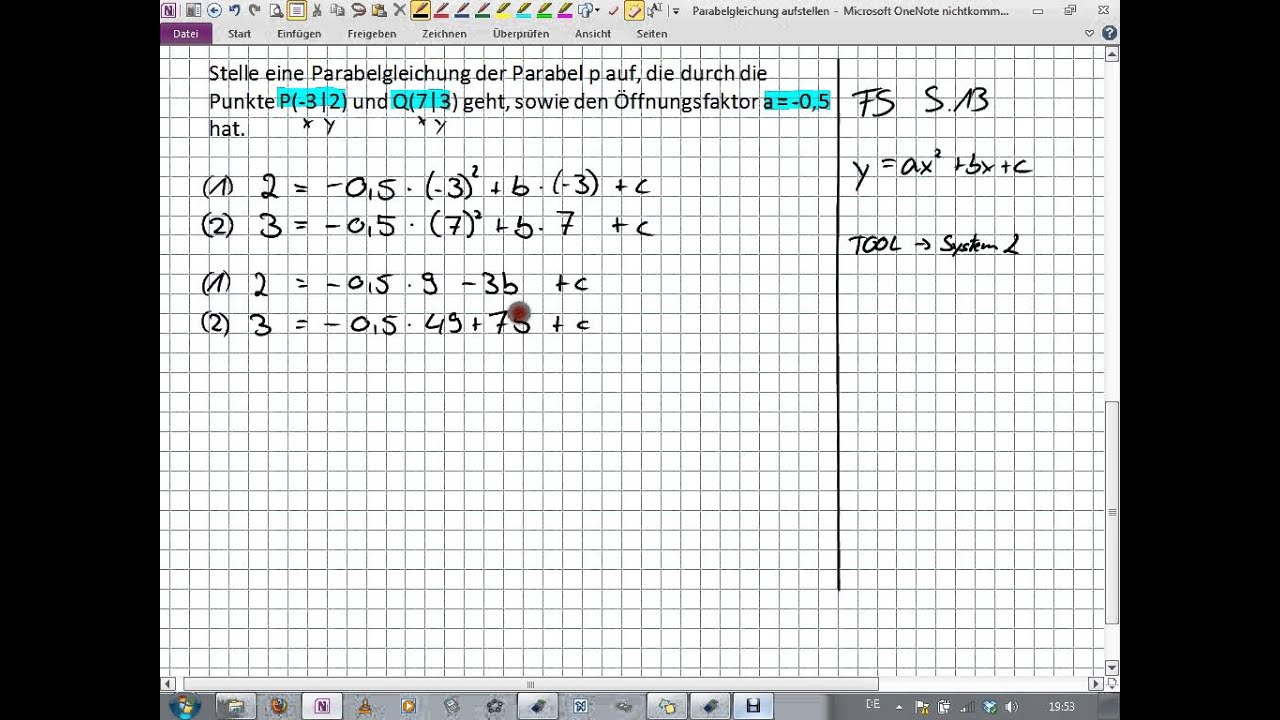 Parabelgleichung aufstellen - Microsoft OneNote nichtkomm...
Datei Start Einfügen Freigeben Zeichnen Überprüfen Ansicht Seiten
Stelle eine Parabelgleichung der Parabel p auf, die durch die
Punkte P(-3|2) und Q(7|3) geht, sowie den Öffnungsfaktor a = -0,5
hat.
x y x y
(1) 2 = -0,5 · (-3)² + b · (-3) + c
(2) 3 = -0,5 · (7)² + b · 7 + c
(1) 2 = -0,5 · 9 - 3b + c
(2) 3 = -0,5 · 49 + 7b + c
FS S.13
y = ax² + bx + c
TOOL → System 2
DE 19:53